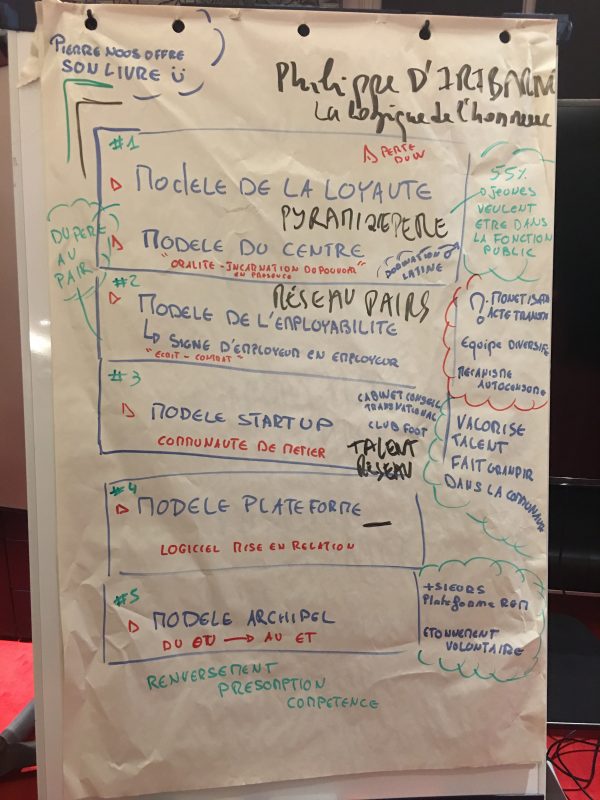 PIERRE NOUS OFFRE
SON LIVRE Ü
Philippe D'IRIBARNE
La logique de l'honneur
#1
PERTE DU LIEN
MODELE DE LA LOYAUTE
PYRAMIDE PERE
MODELE DU CENTRE
"ORALITE - INCARNATION DU POUVOIR"
EN PRESENCE
DOMINATION
LATINE
55%
JEUNES
VEULENT
ETRE DANS
LA FONCTION
PUBLIC
DU PERE
AU
PAIR
#2
RÉSEAU PAIRS
MODELE DE L'EMPLOYABILITE
↳ SIGNE D'EMPLOYEUR EN EMPLOYEUR
"ECRIT - CONTRAT"
Equipe DIVERSIFE
MECANISME
AUTOCENSURE
#3
MODELE STARTUP
COMMUNAUTE DE METIER
CABINET CONSEIL
TRANSNATIONAL
CLUB FOOT
TALENT
RESEAU
VALORISE
TALENT
FAIT GRANDIR
DANS LA COMMUNAUTE
#4
MODELE PLATEFORME
LOGICIEL MISE EN RELATION
#5
MODELE ARCHIPEL
DU OU → AU ET
+SIEURS
Plateforme
ETONNEMENT
VOLONTAIRE
RENVERSEMENT
PRESOMPTION
COMPETENCE